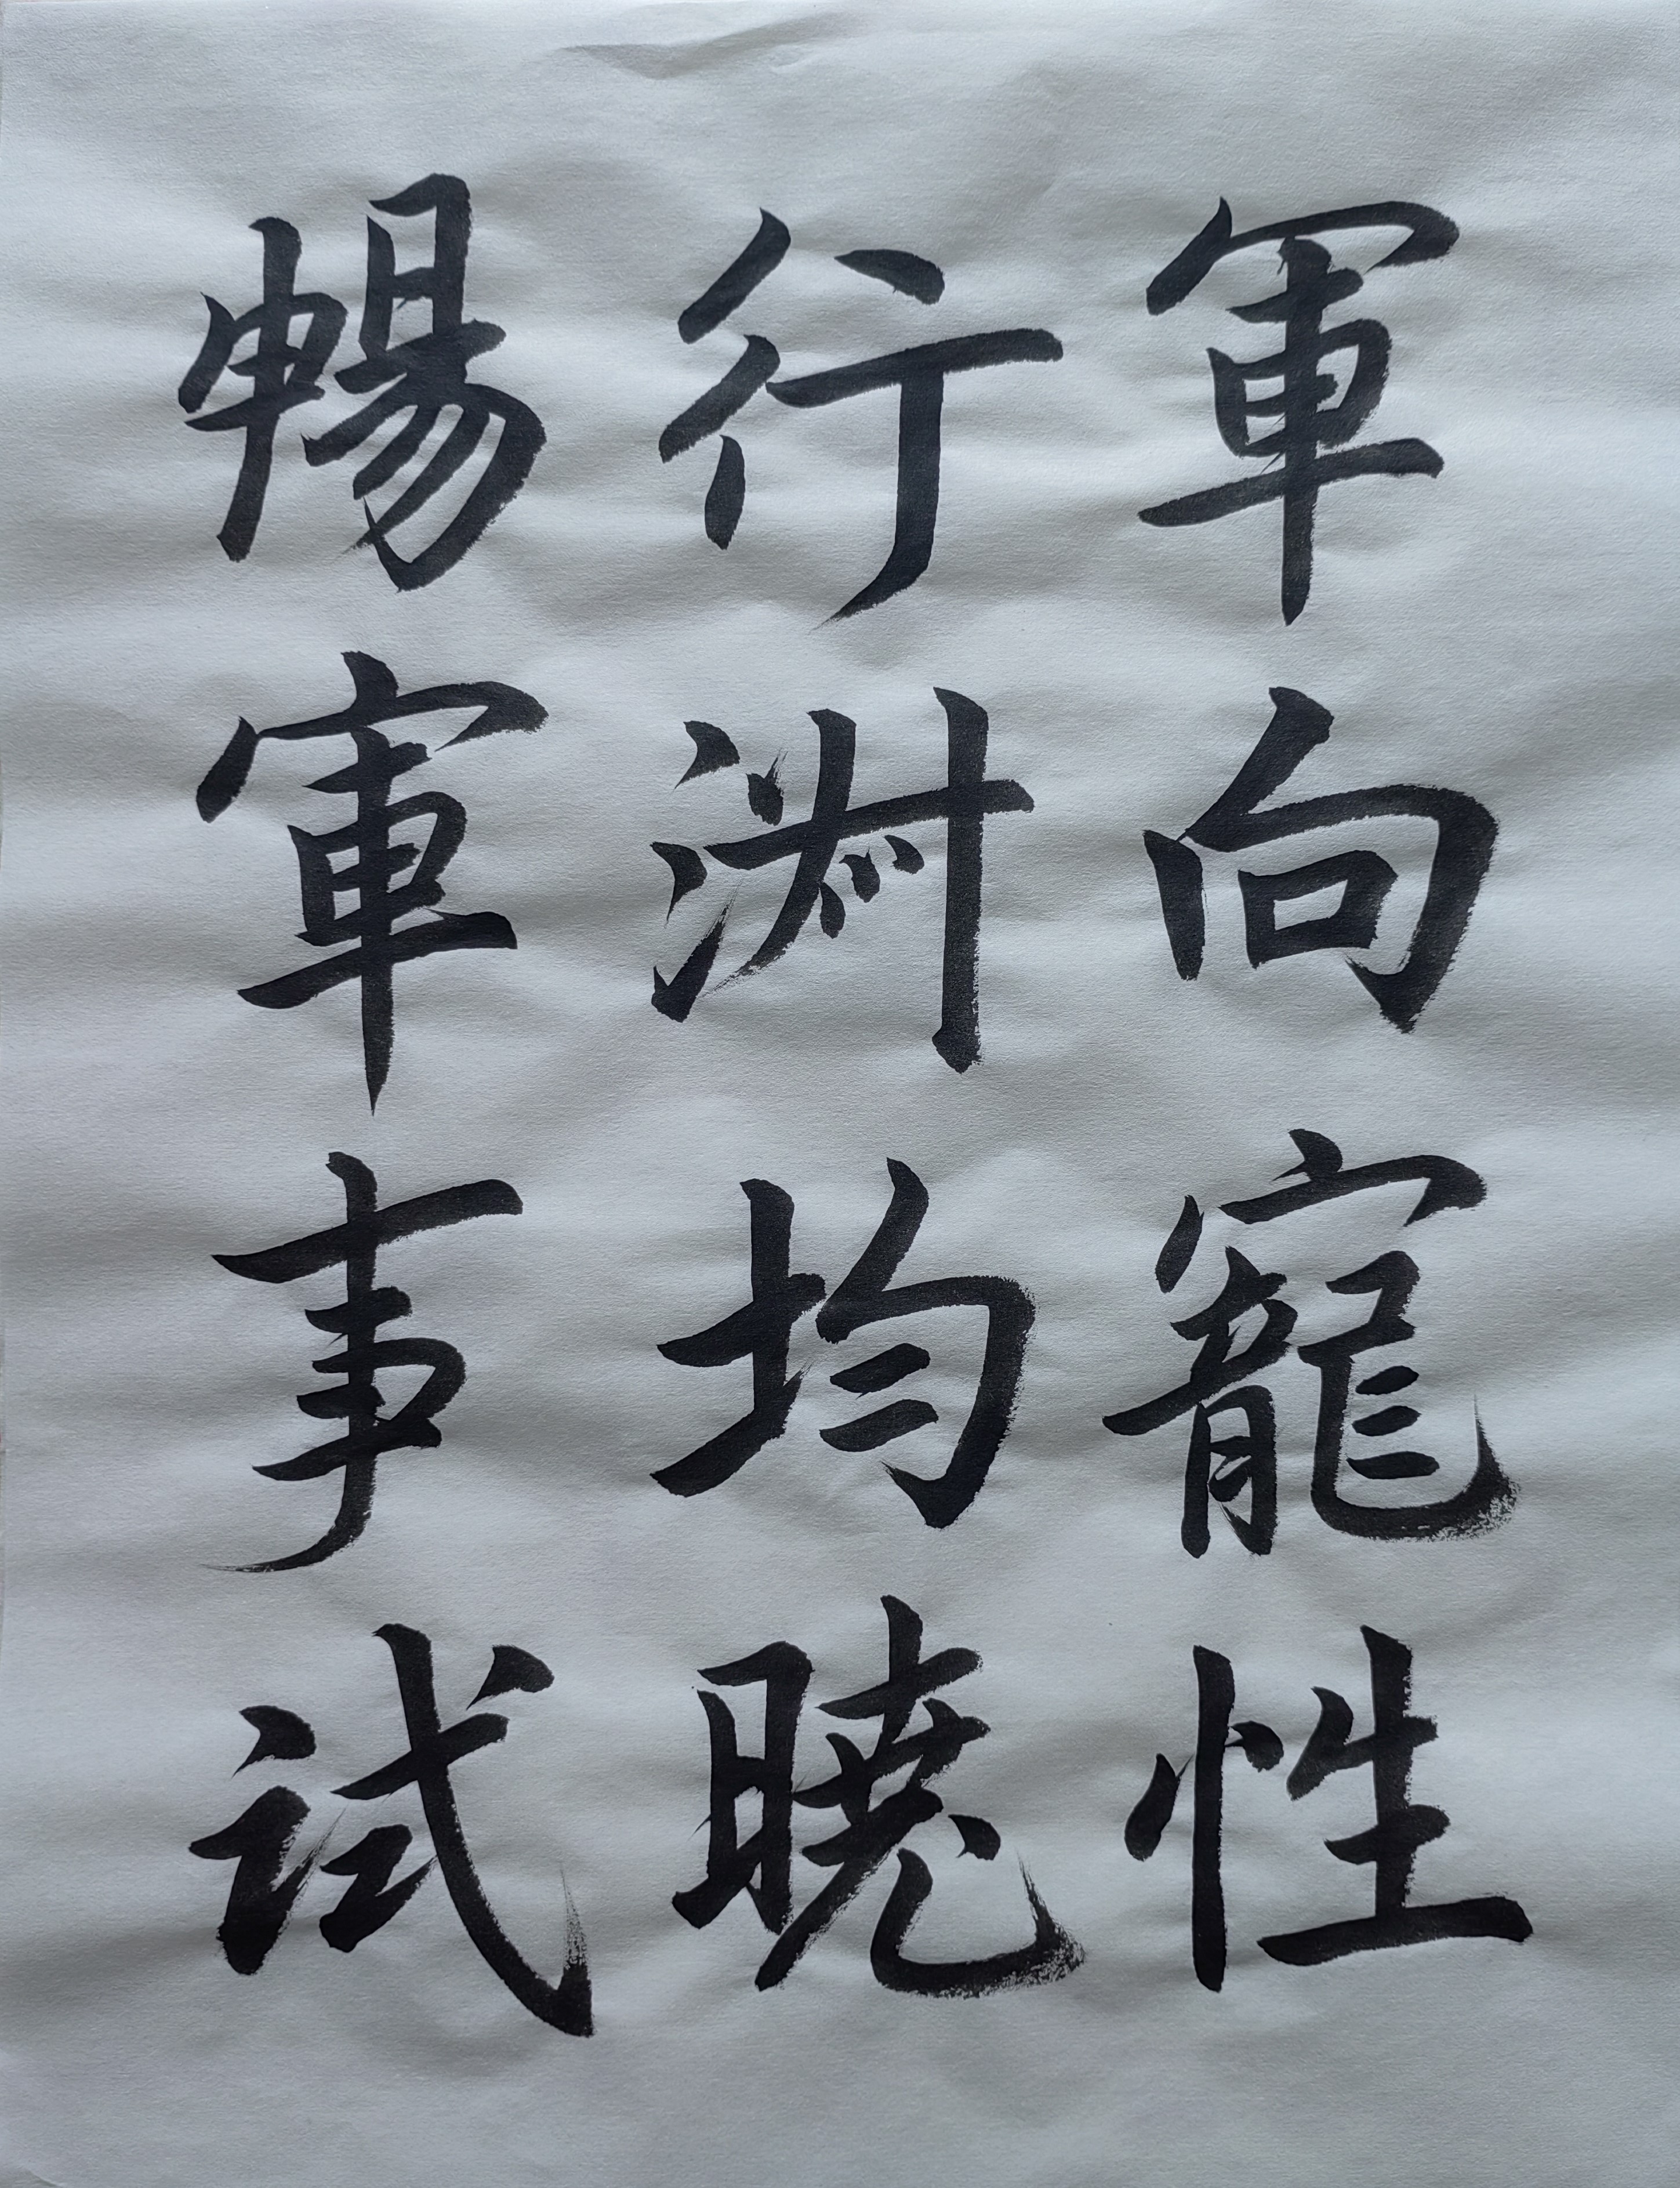 軍向寵性
行淑均曉
暢軍事試